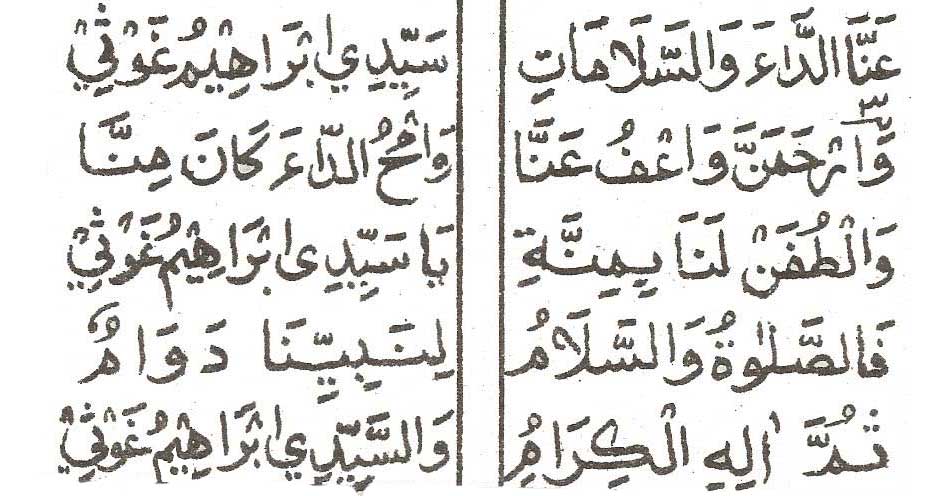 عَنَّا الدَّاءَ وَالسَّلَامَاتِ سَيِّدِي ابْرَاهِيمُ غَوْثِيْ
وَارْحَمَنَّ وَاعْفُ عَنَّا وَامْحُ الدَّاءَ كَانَ مِنَّا
وَالْطُفَنْ لَنَا بِمِنَّةِ يَا سَيِّدِى ابْرَاهِيمُ غَوْثِيْ
فَالصَّلٰوةُ وَالسَّلَامُ لِنَبِيِّنَا دَوَامُ
ثُمَّ اٰلِهِ الْكِرَامُ وَالسَّيِّدِي ابْرَاهِيمُ غَوْثِيْ